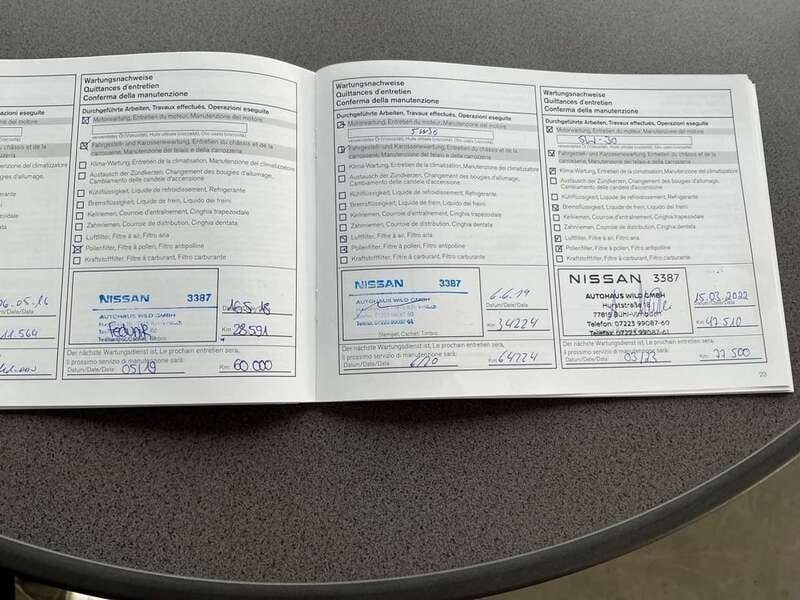 06.05.16
11.564
Wartungsnachweise
Quittances d'entretien
Conferma della manutenzione
Durchgeführte Arbeiten, Travaux effectués, Operazioni eseguite
Motorwartung, Entretien du moteur, Manutenzione del motore
Fahrgestell- und Karosseriewartung, Entretien du châssis et de la
carrosserie, Manutenzione del telaio e della carrozzeria
Klima-Wartung, Entretien de la climatisation, Manutenzione del climatizzatore
Austausch der Zündkerzen, Changement des bougies d'allumage,
Cambiamento delle candele d'accensione
Kühlflüssigkeit, Liquide de refroidissement, Refrigerante
Bremsflüssigkeit, Liquide de frein, Liquido dei freni
Keilriemen, Courroie d'entraînement, Cinghia trapezoidale
Zahnriemen, Courroie de distribution, Cinghia dentata
Luftfilter, Filtre à air, Filtro aria
Pollenfilter, Filtre à pollen, Filtro antipolline
Kraftstofffilter, Filtre à carburant, Filtro carburante
NISSAN 3387
AUTOHAUS WILD GMBH
16.5.18
Km: 28.591
Der nächste Wartungsdienst ist, Le prochain entretien sera,
Il prossimo servizio di manutenzione sarà:
Datum/Date/Data: 05/19 Km: 60.000
Wartungsnachweise
Quittances d'entretien
Conferma della manutenzione
Durchgeführte Arbeiten, Travaux effectués, Operazioni eseguite
Motorwartung, Entretien du moteur, Manutenzione del motore
5W30
verwendetes Öl (Viskosität), Huile utilisée (viscosité), Olio usato (viscosità)
Fahrgestell- und Karosseriewartung, Entretien du châssis et de la
carrosserie, Manutenzione del telaio e della carrozzeria
Klima-Wartung, Entretien de la climatisation, Manutenzione del climatizzatore
Austausch der Zündkerzen, Changement des bougies d'allumage,
Cambiamento delle candele d'accensione
Kühlflüssigkeit, Liquide de refroidissement, Refrigerante
Bremsflüssigkeit, Liquide de frein, Liquido dei freni
Keilriemen, Courroie d'entraînement, Cinghia trapezoidale
Zahnriemen, Courroie de distribution, Cinghia dentata
Luftfilter, Filtre à air, Filtro aria
Pollenfilter, Filtre à pollen, Filtro antipolline
Kraftstofffilter, Filtre à carburant, Filtro carburante
NISSAN 3387
AUTOHAUS WILD GMBH
Stempel, Cachet, Timbro
6.6.19
Datum/Date/Data
Km: 34224
Der nächste Wartungsdienst ist, Le prochain entretien sera,
Il prossimo servizio di manutenzione sarà:
Datum/Date/Data: 6/20 Km: 64224
Wartungsnachweise
Quittances d'entretien
Conferma della manutenzione
Durchgeführte Arbeiten, Travaux effectués, Operazioni eseguite
Motorwartung, Entretien du moteur, Manutenzione del motore
5W-30
verwendetes Öl (Viskosität), Huile utilisée (viscosité), Olio usato (viscosità)
Fahrgestell- und Karosseriewartung, Entretien du châssis et de la
carrosserie, Manutenzione del telaio e della carrozzeria
Klima-Wartung, Entretien de la climatisation, Manutenzione del climatizzatore
Austausch der Zündkerzen, Changement des bougies d'allumage,
Cambiamento delle candele d'accensione
Kühlflüssigkeit, Liquide de refroidissement, Refrigerante
Bremsflüssigkeit, Liquide de frein, Liquido dei freni
Keilriemen, Courroie d'entraînement, Cinghia trapezoidale
Zahnriemen, Courroie de distribution, Cinghia dentata
Luftfilter, Filtre à air, Filtro aria
Pollenfilter, Filtre à pollen, Filtro antipolline
Kraftstofffilter, Filtre à carburant, Filtro carburante
NISSAN 3387
AUTOHAUS WILD GMBH
Hurststraße
77815 Bühl-Vimbuch
Telefon: 07223 99087-60
Telefax: 07223 99087-61
15.03.2022
Datum/Date/Data
Km: 47.510
Der nächste Wartungsdienst ist, Le prochain entretien sera,
Il prossimo servizio di manutenzione sarà:
Datum/Date/Data: 03/23 Km: 77 500
23